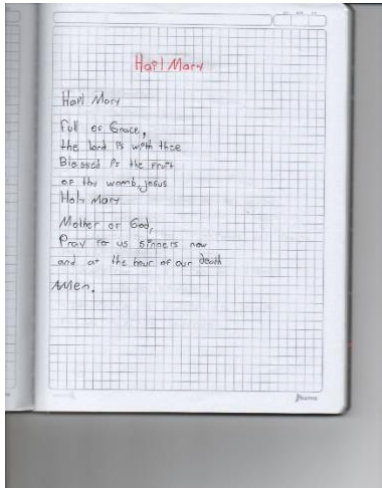 Hail Mary
Hail Mary
Full of Grace,
the lord is with thee
Blessed is the fruit
of thy womb, jesus
Holy Mary
Mother of God,
Pray for us sinners now
and at the hour of our death
Amen.